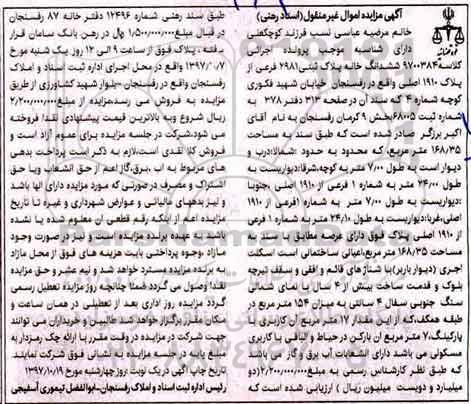 آگهی مزایده اموال غیر منقول (اسناد رهنی)
خانم مرضیه عباسی نسب فرزند کوچکعلی
دارای شناسه موجب پرونده اجرائی
کلاسه ۹۷۰۰۳۸۴ ششدانگ خانه پلاک ثبتی ۲۹۸۱ فرعی از
پلاک ۱۹۱۰ اصلی واقع در رفسنجان خیابان شهید فکوری
کوچه شماره ۴ که سند آن در صفحه ۳۱۳ دفتر ۳۷۸ به
شماره ثبت ۶۸۰۰۵ بخش ۹ کرمان رفسنجان به نام آقای
اکبر برزگر صادر شده است که طبق سند به مساحت
۱۶۸/۳۵ متر مربع، که محدود به حدود: شمالا: درب و
دیوار است به طول ۷/۰۰ متر به کوچه، شرقا: دیواریست به
طول ۲۴/۰۰ متر به شماره ۱ فرعی از ۱۹۱۰ اصلی، جنوبا
:دیواریست به طول ۷/۰۰ متر به شماره ۱ فرعی از ۱۹۱۰
اصلی، غربا: دیواریست به طول ۲۴/۱۰ متر به شماره ۱ فرعی
از ۱۹۱۰ اصلی پلاک فوق دارای عرصه مطابق سند به
مساحت ۱۶۸/۳۵ متر مربع، اعیانی ساختمانی است اسکلت
آجری (دیوار باربر) با شناژهای قائم و افقی و سقف تیرچه
بلوک و قدمت ساخت بیش از ۴ سال با نمای شمالی
سنگ جنوبی سفال ۴ سانتی به میزان ۱۵۴ متر مربع در
طبقه همکف، که از این مقدار ۱۷ متر مربع آن کاربری با
پارکینگ، ۷ متر مربع آن بارکن در حیاط و الباقی با کاربری
مسکونی می باشد دارای انشعابات آب برق و گاز می باشد
که طبق نظر کارشناس رسمی به مبلغ ۲/۲۰۰/۰۰۰/۰۰۰ (دو
میلیارد و دویست میلیون ریال) ارزیابی شده است که
طبق سند رهنی شماره ۱۲۴۹۶ دفتر خانه ۸۷ رفسنجان
در قبال مبلغ ۱/۵۰۰/۰۰۰/۰۰۰ ریال در رهن بانک سامان قرار
گرفته، پلاک فوق از ساعت ۹ الی ۱۲ روز یک شنبه مورخ
۱۳۹۷/۰۸/۰۷ در محل اجرای اداره ثبت اسناد و املاک
رفسنجان واقع در رفسنجان –بلوار شهید کشاورزی از طریق
مزایده به فروش می رسد. مزایده از مبلغ ۲/۲۰۰/۰۰۰/۰۰۰
ریال شروع و به بالاترین قیمت پیشنهادی نقدا فروخته
می شود، شرکت در جلسه مزایده برای عموم آزاد است و
فروش کلا نقدی است، لازم به ذکر است پرداخت بدهی
های مربوط به آب ،برق، گاز اعم از حق انشعاب و یا حق
اشتراک و مصرف در صورتی که مورد مزایده دارای آنها باشد
و نیز بدهیهای مالیاتی و عوارض شهرداری و غیره تا تاریخ
مزایده اعم از اینکه رقم قطعی آن معلوم شده یا نشده
باشد به عهده برنده مزایده است، و نیز در صورت وجود
مازاد وجوه پرداختی بابت هزینه های فوق از محل مازاد
به برنده مزایده مسترد خواهد شد و نیم عشر و حق مزایده
نقدا وصول می گردد ضمنا چنانچه روز مزایده تعطیل رسمی
گردد مزایده روز اداری بعد از تعطیلی در همان ساعت و
مکان مقرر برگزار خواهد شد طالبین و خریداران می توانند
جهت شرکت در مزایده در وقت مقرر با ارائه چک رمزدار به
مبلغ پایه در جلسه مزایده به نشانی فوق شرکت نمایند.
تاریخ چاپ آگهی در یک نوبت :روز چهارشنبه مورخ ۱۳۹۷/۱۰/۱۹
رئیس اداره ثبت اسناد و املاک رفسنجان–ابوالفضل تیموری آسفیچی